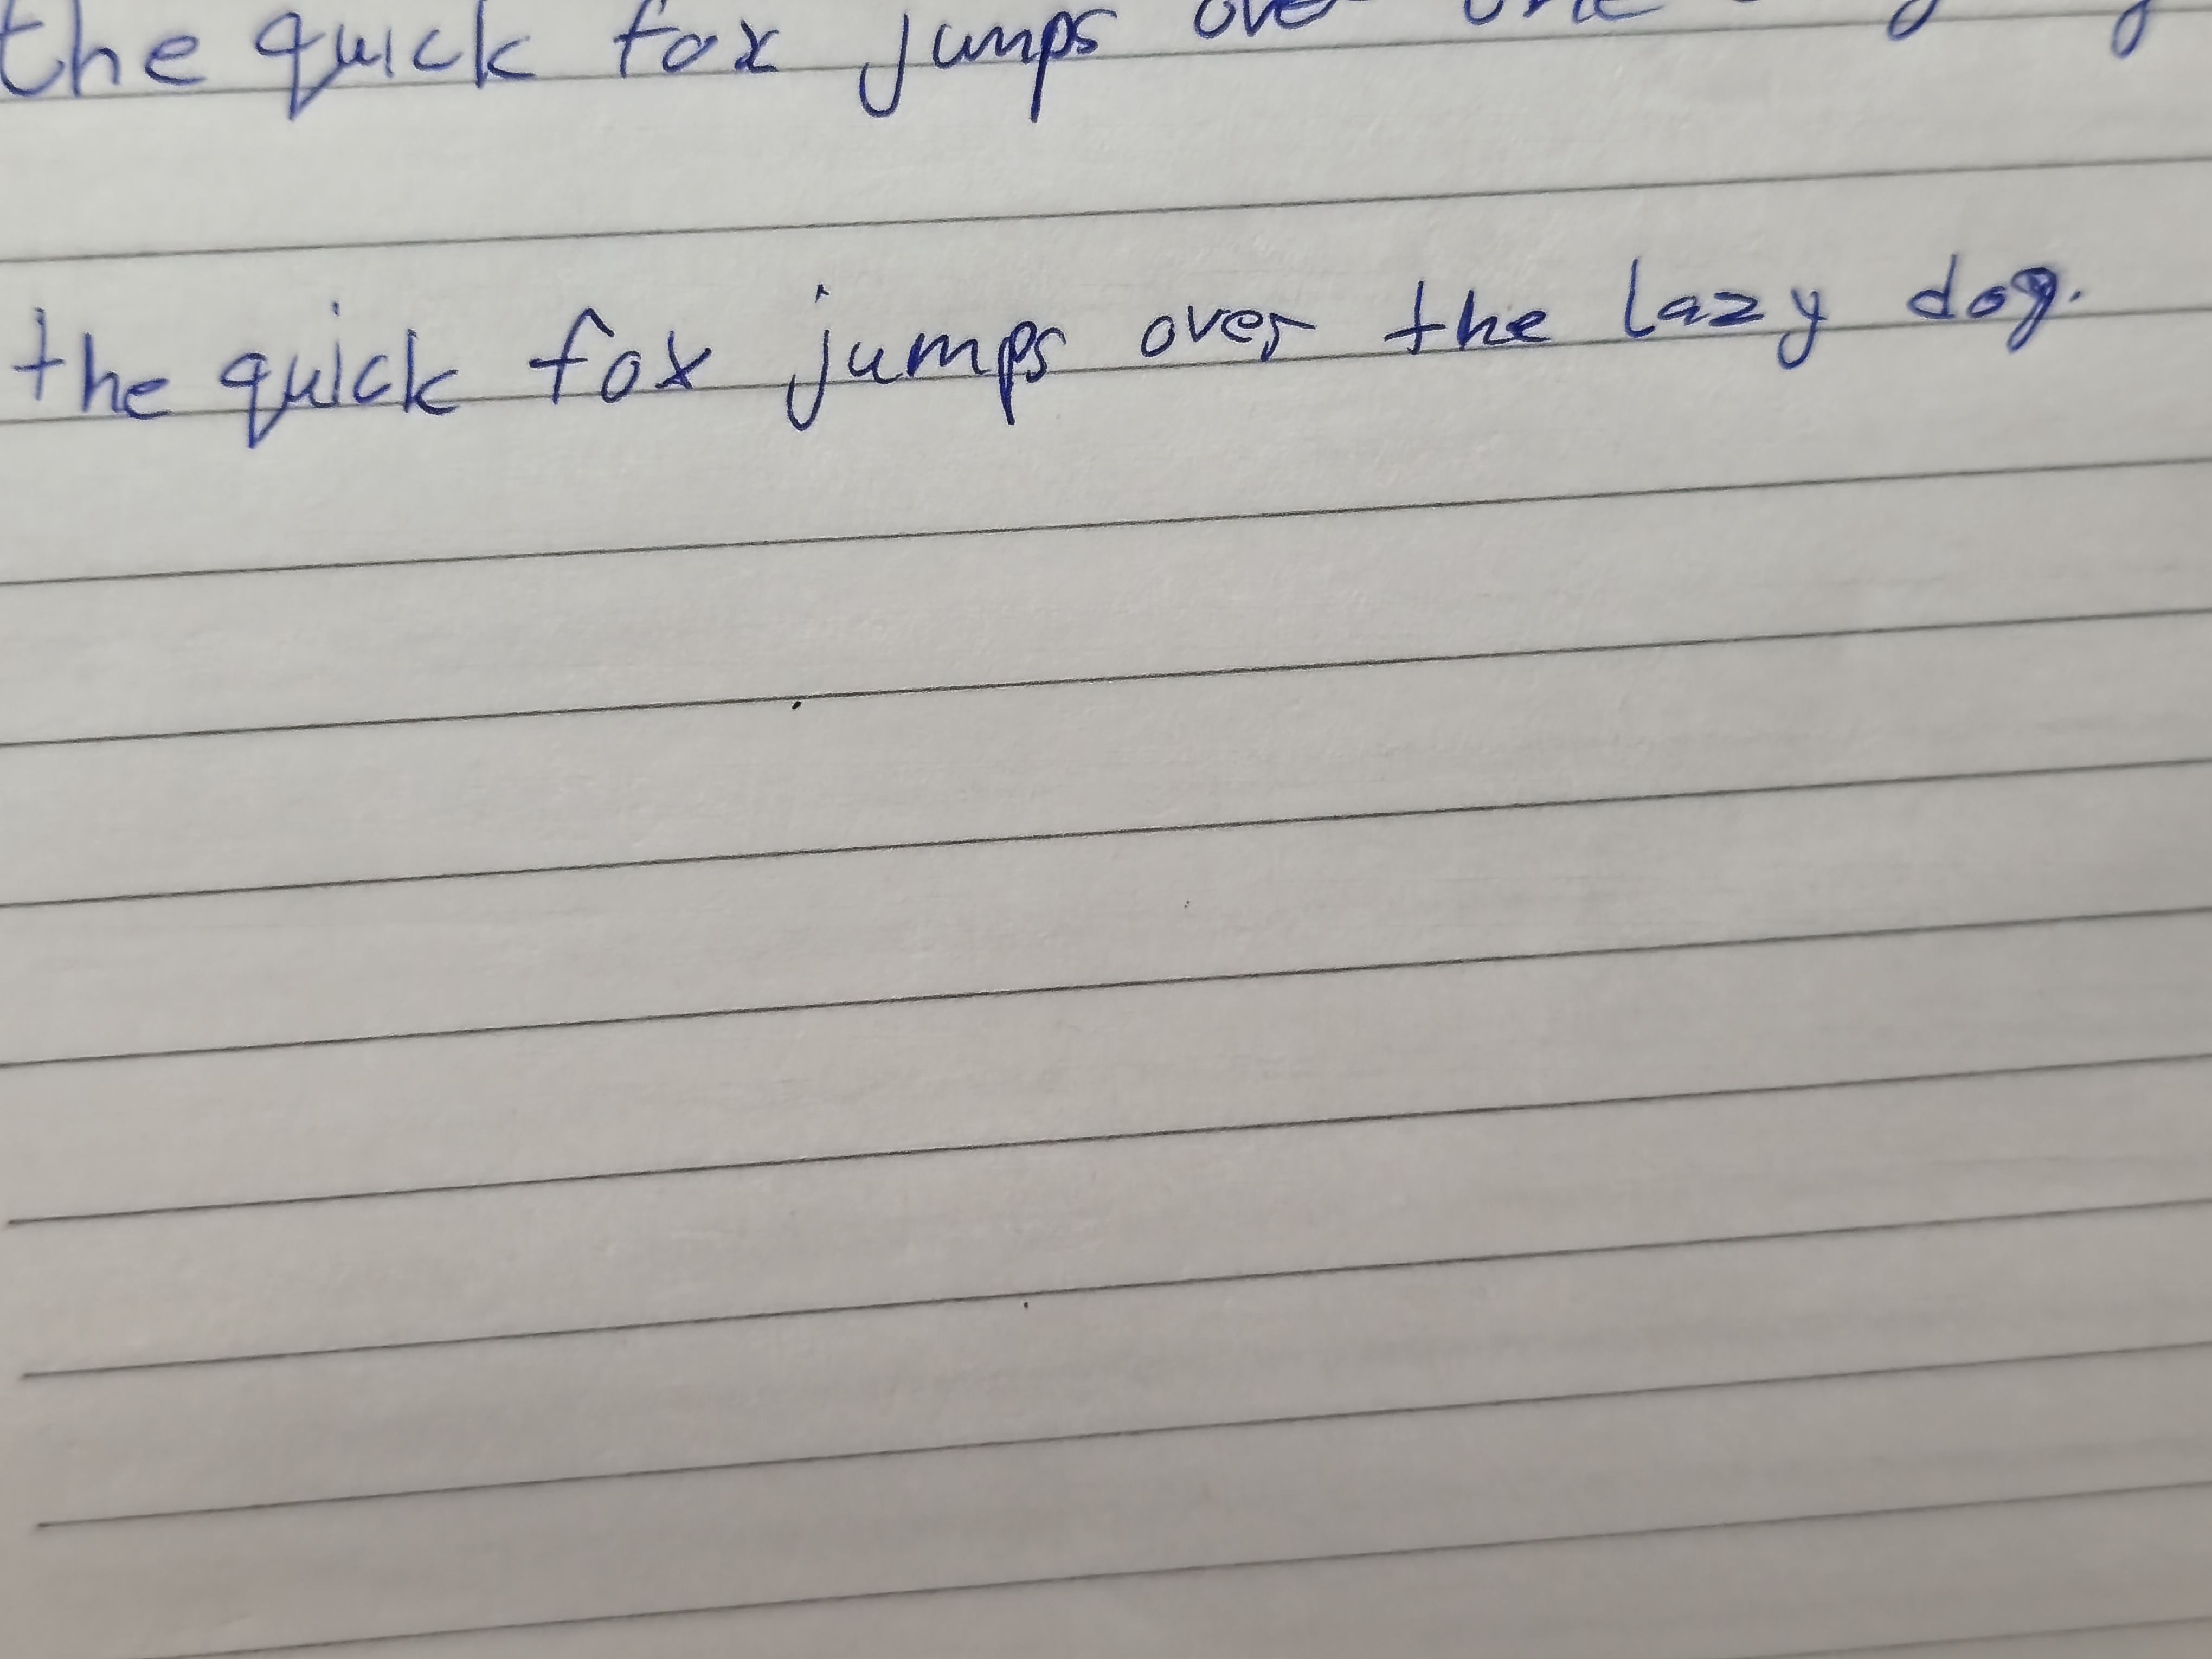 the quick fox jumps over the
the quick fox jumps over the lazy dog.